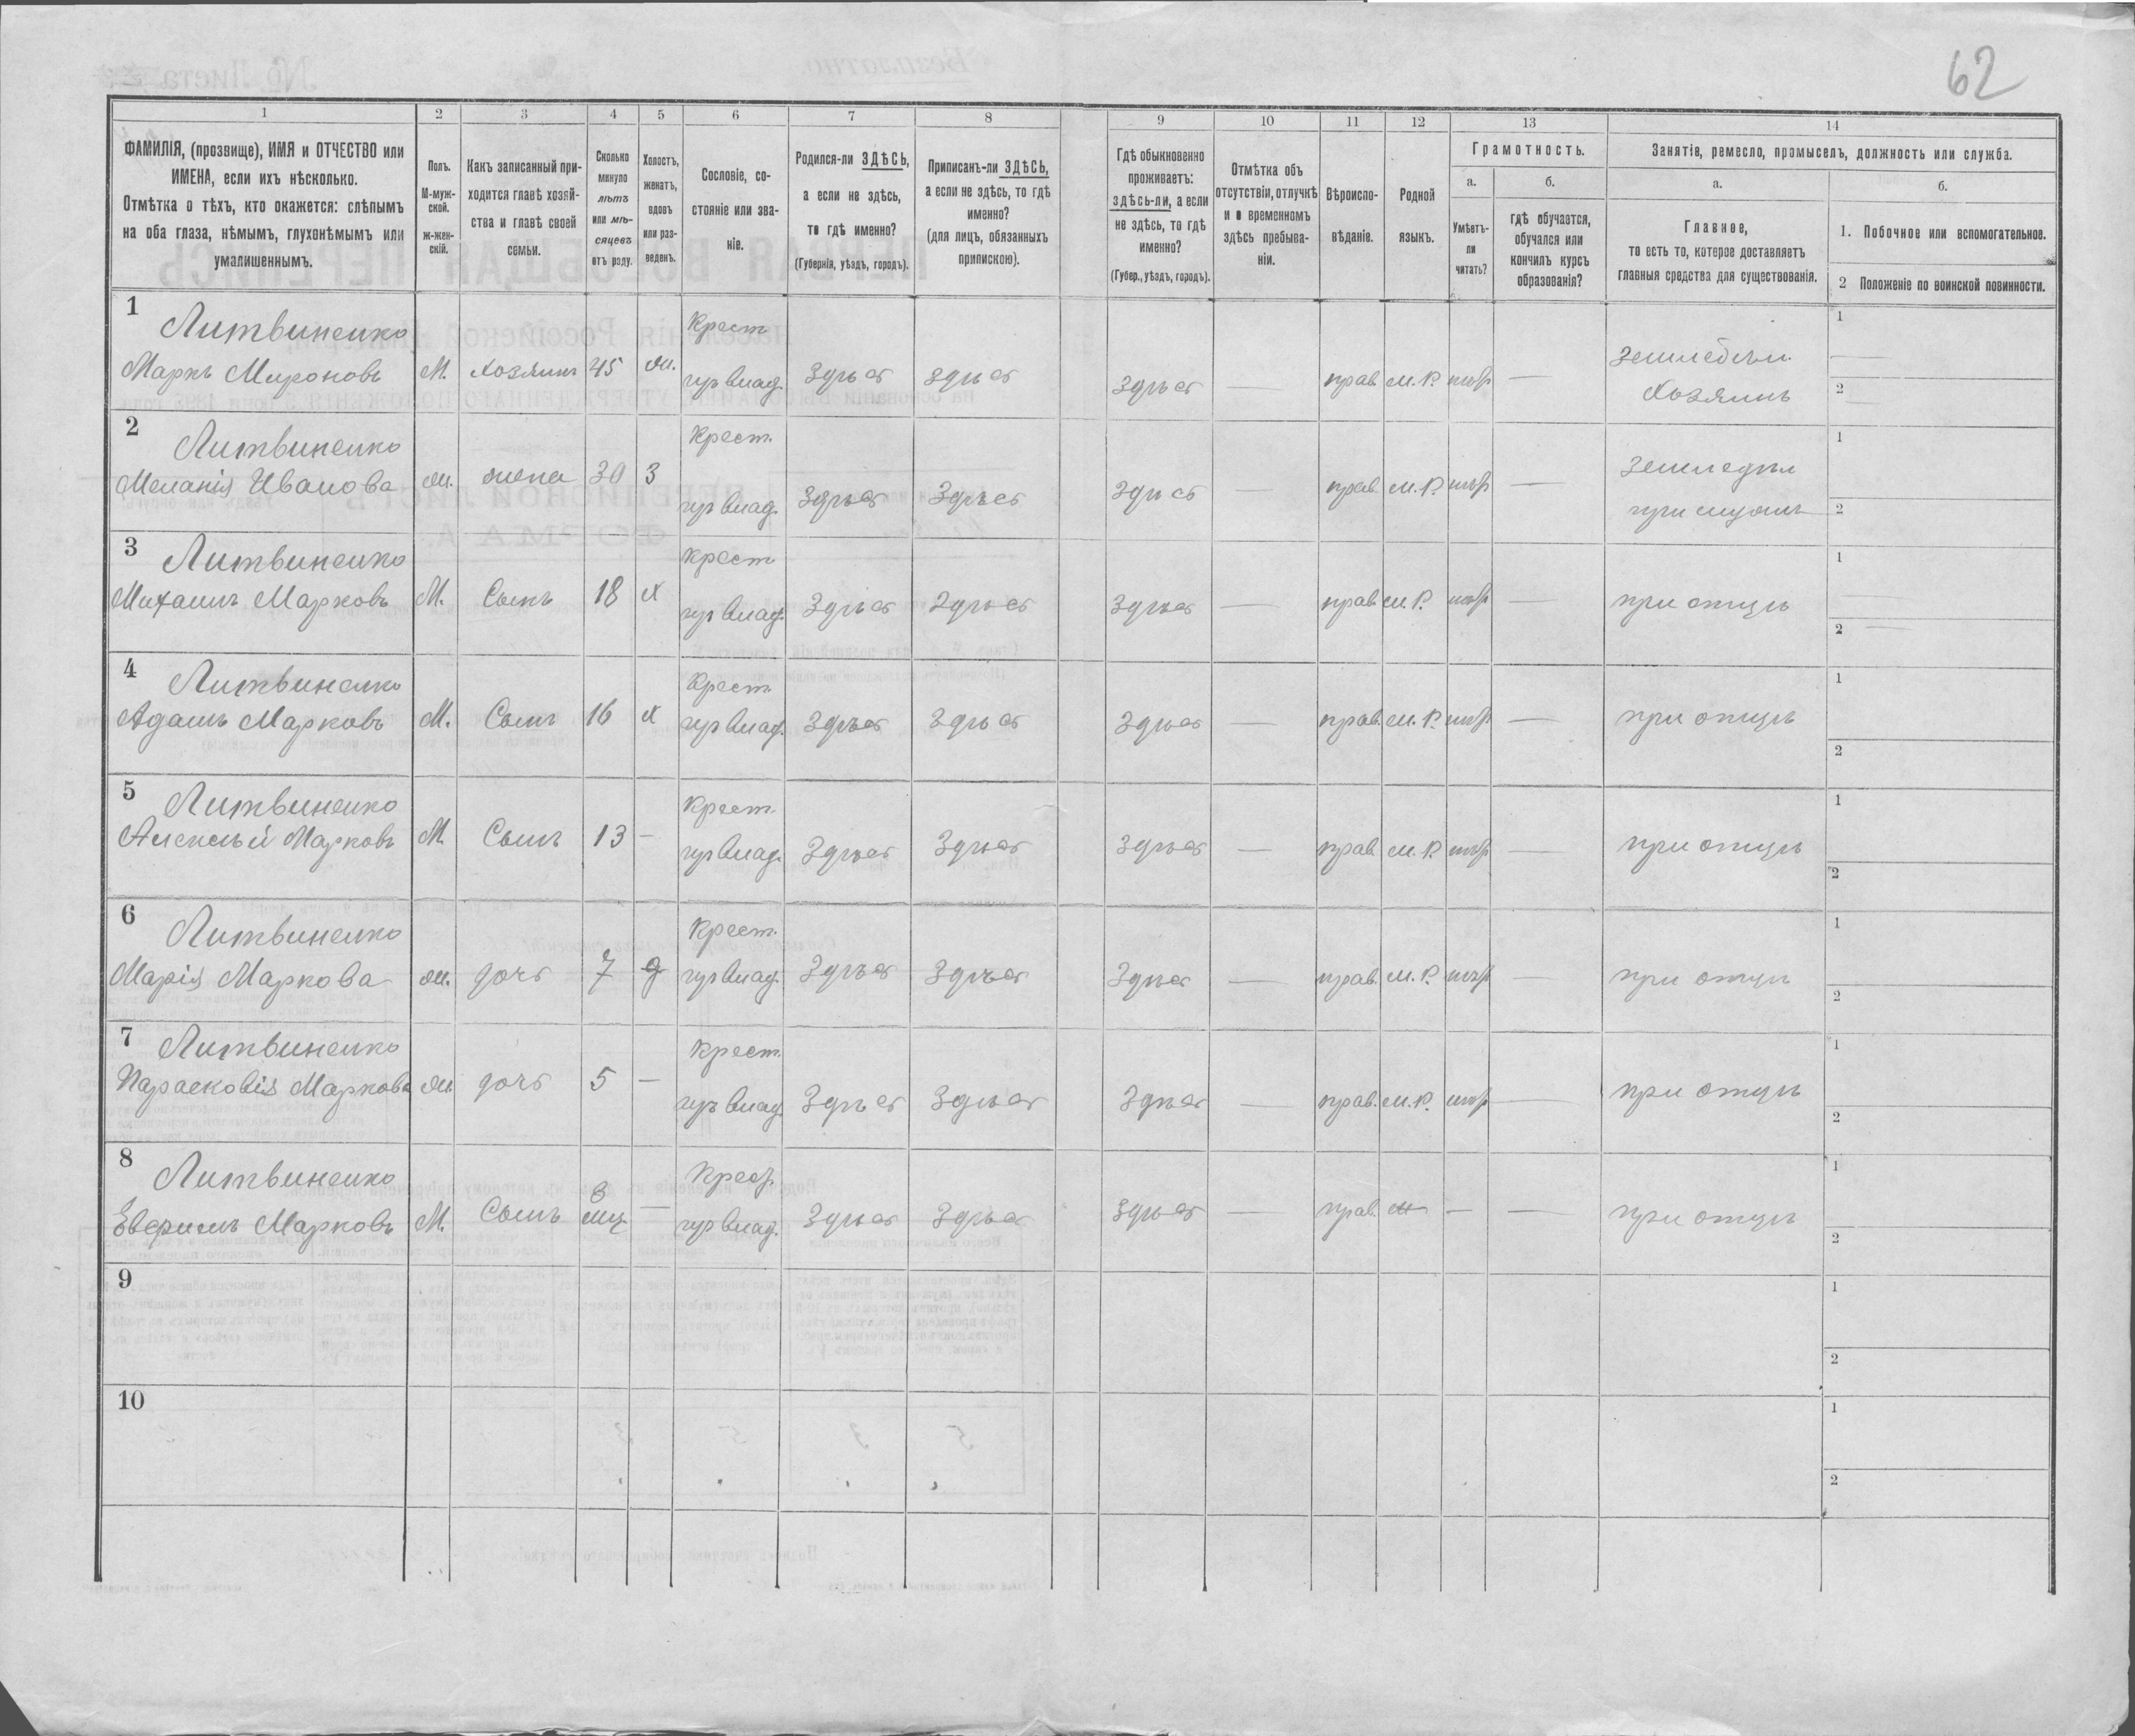 62
1 2 3 4 5 6 7 8 9 10 11 12 13 14
ФАМИЛІЯ, (прозвище), ИМЯ и ОТЧЕСТВО или
ИМЕНА, если ихъ нѣсколько.
Отмѣтка о тѣхъ, кто окажется: слѣпымъ
на оба глаза, нѣмымъ, глухонѣмымъ или
умалишеннымъ.
Полъ.
М-муж-
ской.
ж-жен-
скій.
Какъ записанный при-
ходится главѣ хозяй-
ства и главѣ своей
семьи.
Сколько
минуло
лѣтъ
или мѣ-
сяцевъ
отъ роду.
Холостъ,
женатъ,
вдовъ
или раз-
веденъ.
Сословіе, со-
стояніе или зва-
ніе.
Родился-ли ЗДѢСЬ,
а если не здѣсь,
то гдѣ именно?
(Губернія, уѣздъ, городъ).
Приписанъ-ли ЗДѢСЬ,
а если не здѣсь, то гдѣ
именно?
(для лицъ, обязанныхъ
припискою).
Гдѣ обыкновенно
проживаетъ:
здѣсь-ли, а если
не здѣсь, то гдѣ
именно?
(Губер., уѣздъ, городъ).
Отмѣтка объ
отсутствіи, отлучкѣ
и о временномъ
здѣсь пребыва-
ніи.
Вѣроиспо-
вѣданіе.
Родной
языкъ.
Грамотность.
а.
Умѣетъ-
ли
читать?
б.
гдѣ обучается,
обучался или
кончилъ курсъ
образованія?
Занятіе, ремесло, промыселъ, должность или служба.
а.
Главное,
то есть то, которое доставляетъ
главныя средства для существованія.
б.
1. Побочное или вспомогательное.
2 Положеніе по воинской повинности.
1 Литвиненко Крест 1
Маркъ Мироновъ М. хозяинъ 45 ж. влад. здѣсь здѣсь здѣсь — прав. М.Р. — земледѣл. Хозяинъ 2
2 Литвиненко Крест. 1
Меланія Иванова ж. жена 30 З влад. здѣсь здѣсь здѣсь — прав. М.Р. — земледѣл при мужѣ 2
3 Литвиненко крест 1
Михаилъ Марковъ М. Сынъ 18 х влад. здѣсь здѣсь здѣсь — прав. М.Р. — при отцѣ 2
4 Литвиненко Крест 1
Адамъ Марковъ М. Сынъ 16 х влад. здѣсь здѣсь здѣсь — прав. М.Р. — при отцѣ 2
5 Литвиненко Крест. 1
Алексѣй Марковъ М. Сынъ 13 — влад. здѣсь здѣсь здѣсь — прав. М.Р. — при отцѣ 2
6 Литвиненко Крест. 1
Марія Маркова ж. дочь 7 влад. здѣсь здѣсь здѣсь — прав. М.Р. — при отцѣ 2
7 Литвиненко Крест. 1
Парасковія Маркова ж. дочь 5 — влад. здѣсь здѣсь здѣсь — прав. М.Р. — при отцѣ 2
8 Литвиненко Крест. 1
Марковъ М. Сынъ мц — влад. здѣсь здѣсь здѣсь — прав. — — при отцѣ 2
9 1
2
10 1
2